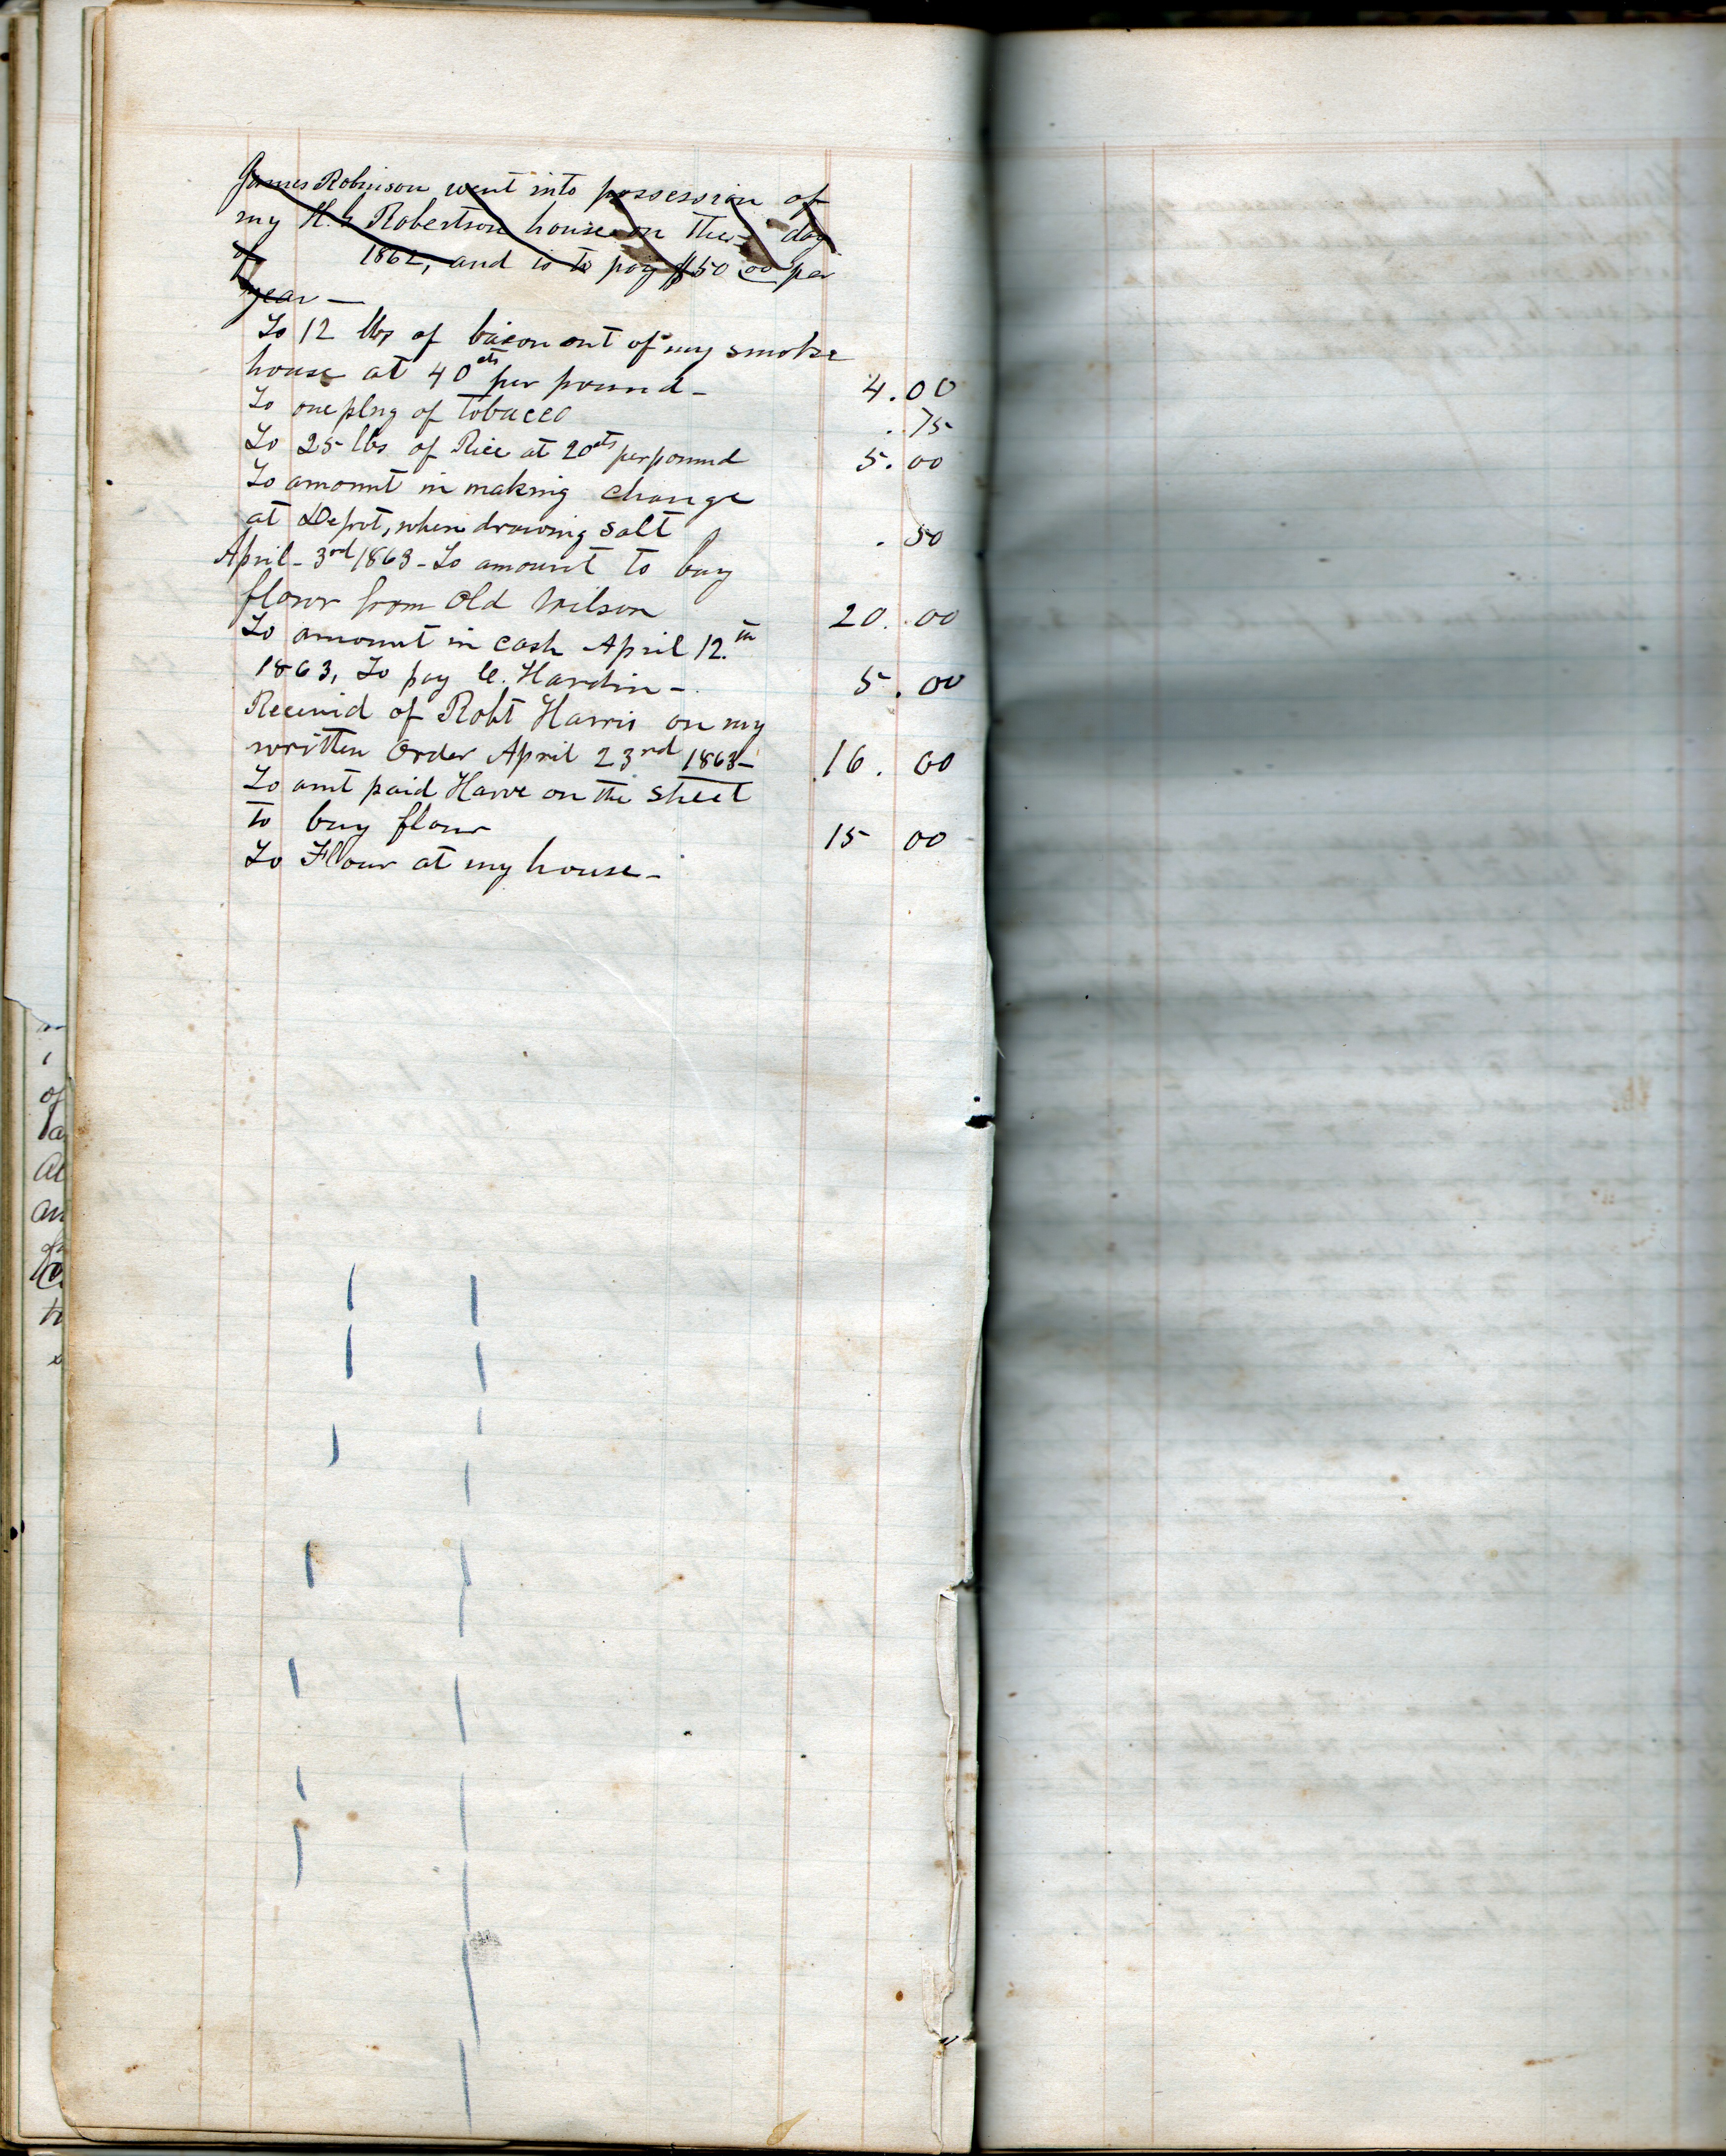 James Robinson went into possession of
my H. Robertson house on the day
of 1862, and is to pay $50 00 per
year —
To 12 lbs of bacon out of my smoke
house at 40 cts per pound - 4.00
To one plug of Tobacco .75
To 25 lbs of Rice at 20 cts per pound 5.00
To amount in making change
at Depot, when drawing salt .50
April - 3rd 1863 - To amount to buy
flour from Old Wilson 20.00
To amount in cash April 12.th
1863, To pay C. Hardin - 5.00
Receivid of Robt Harris on my
written Order April 23rd 1863 - 16.00
To amt paid Harve on the street
to buy flour 15 00
To Flour at my house -